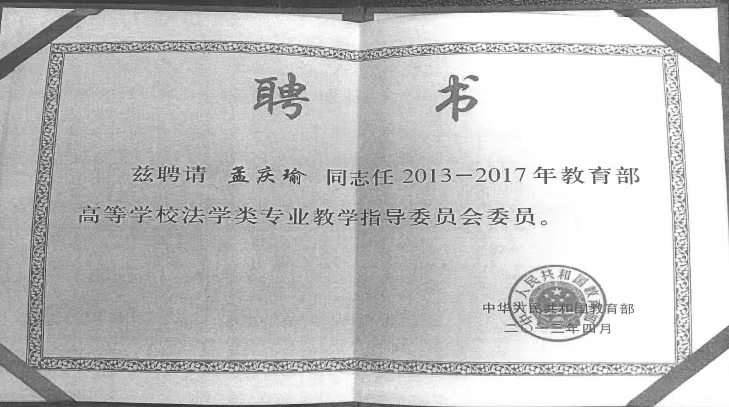 聘书
兹聘请 孟庆瑜 同志任 2013-2017 年教育部
高等学校法学类专业教学指导委员会委员。
中华人民共和国教育部
中华人民共和国教育部
二〇一三年四月